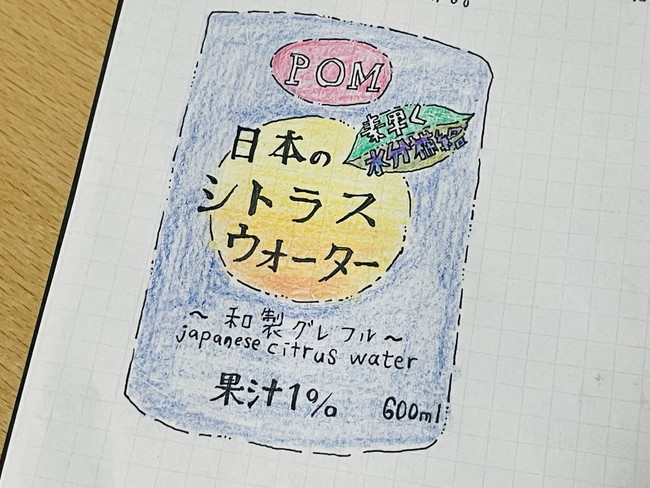 POM
素早く
水分補給
日本の
シトラス
ウォーター
〜和製グレフル〜
japanese citrus water
果汁1%
600ml